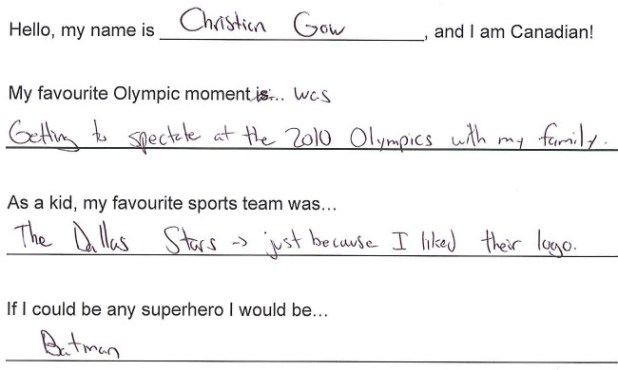 Hello, my name is Christian Gow, and I am Canadian!
My favourite Olympic moment is... was
Getting to spectate at the 2010 Olympics with my family.
As a kid, my favourite sports team was...
The Dallas Stars → just because I liked their logo.
If I could be any superhero I would be...
Batman